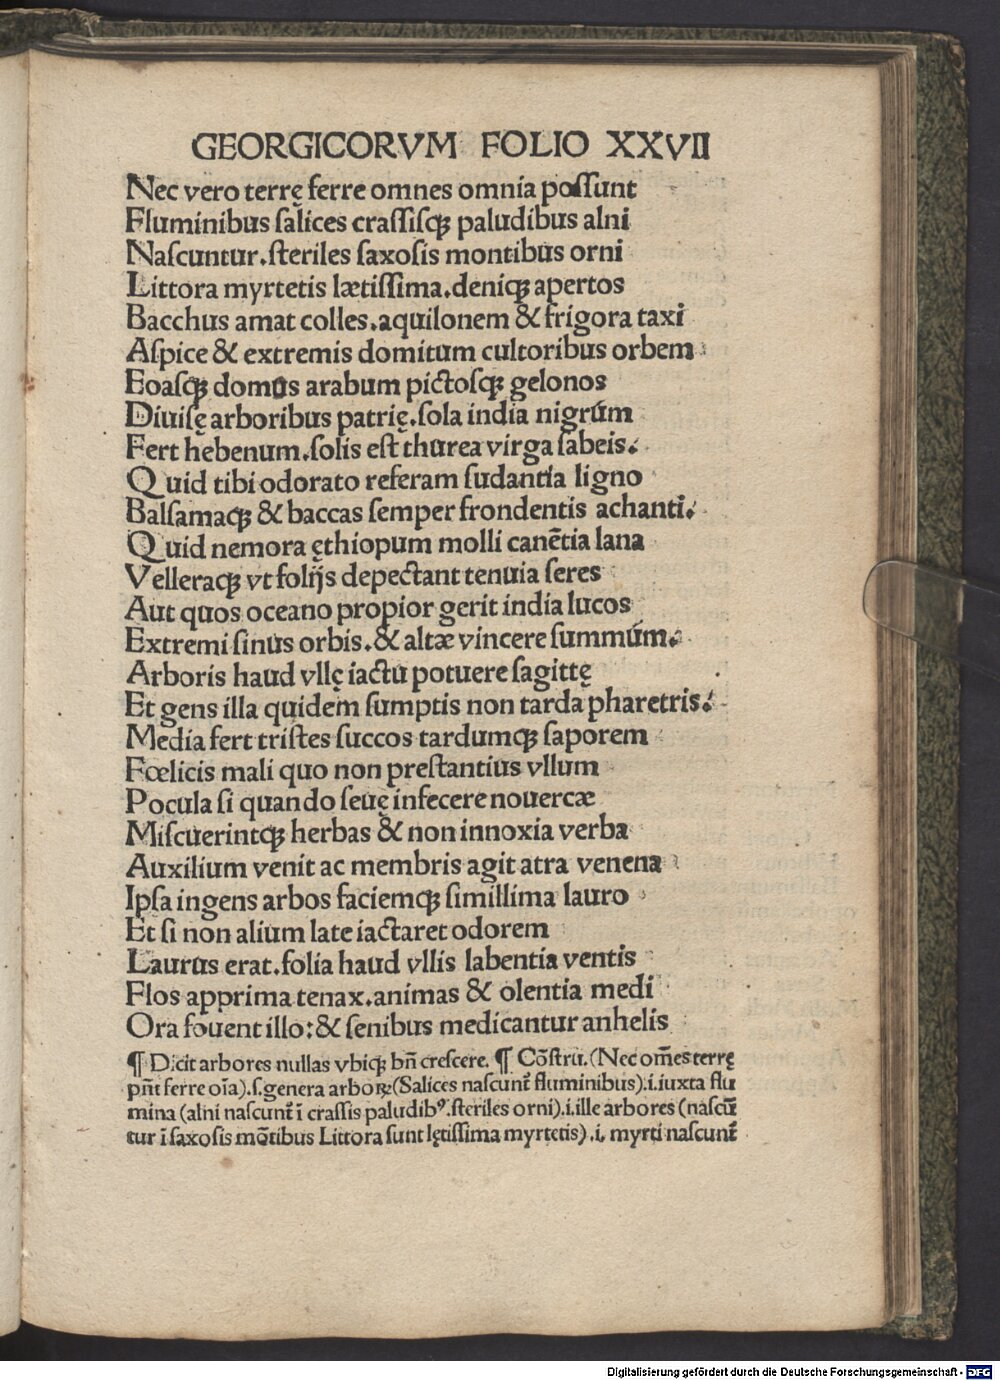 GEORGICORVM FOLIO XXVII
Nec vero terrę ferre omnes omnia possunt
Fluminibus ſalices craſſiſqꝫ paludibus alni
Naſcuntur.ſteriles ſaxoſis montibus orni
Littora myrtetis lætiſſima.deniqꝫ apertos
Bacchus amat colles.aquilonem & frigora taxi
Aſpice & extremis domitum cultoribus orbem
Eoaſqꝫ domus arabum pictoſqꝫ gelonos
Diuiſę arboribus patrię.ſola india nigrum
Fert hebenum.ſolis eſt thurea virga ſabeis.
Quid tibi odorato referam ſudantia ligno
Balſamaqꝫ & baccas ſemper frondentis achanti.
Quid nemora ęthiopum molli canētia lana
Velleraqꝫ vt folijs depectant tenuia ſeres
Aut quos oceano propior gerit india lucos
Extremi ſinus orbis.& altæ vincere ſummum.
Arboris haud vllę iactu potuere ſagittę
Et gens illa quidem ſumptis non tarda pharetris.
Media fert triſtes ſuccos tardumqꝫ ſaporem
Fœlicis mali quo non preſtantius vllum
Pocula ſi quando ſeuę infecere nouercæ
Miſcuerintqꝫ herbas & non innoxia verba
Auxilium venit ac membris agit atra venena
Ipſa ingens arbos faciemqꝫ ſimillima lauro
Et ſi non alium late iactaret odorem
Laurus erat.folia haud vllis labentia ventis
Flos apprima tenax.animas & olentia medi
Ora fouent illo:& ſenibus medicantur anhelis
¶ Dicit arbores nullas vbiqꝫ bñ creſcere. ¶ Cōſtru.(Nec om̃es terrę
pñt ferre oīa).ſ.genera arboꝝ (Salices naſcunt᷑ fluminibus).i.iuxta flu
mina (alni naſcunt᷑ ī craſſis paludibꝰ.ſteriles orni).i.ille arbores (naſcū
tur ī ſaxoſis mōtibus Littora ſunt lętiſſima myrtetis).i. myrti naſcunt᷑
Digitalisierung gefördert durch die Deutsche Forschungsgemeinschaft - DFG